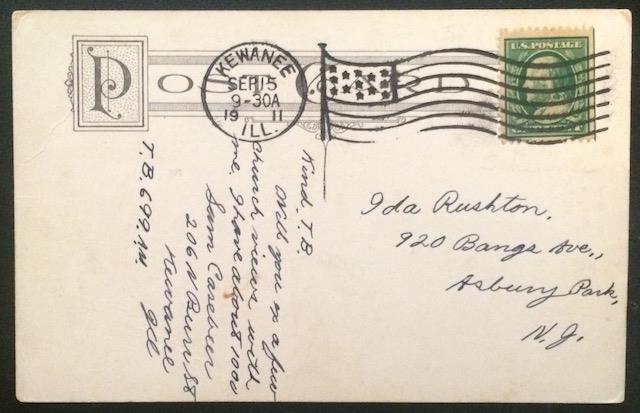 POST CARD
KEWANEE
SEP 15
9-30A
19 11
ILL.
U.S. POSTAGE
Kind. T.B.
Will you ex a few
church views with
me, I have about 1000
Sam Casebeer
206 N Burr St
Kewanee
Ill
T.B. 699. AM
Ida Rushton,
920 Bangs Ave.,
Asbury Park,
N.J.